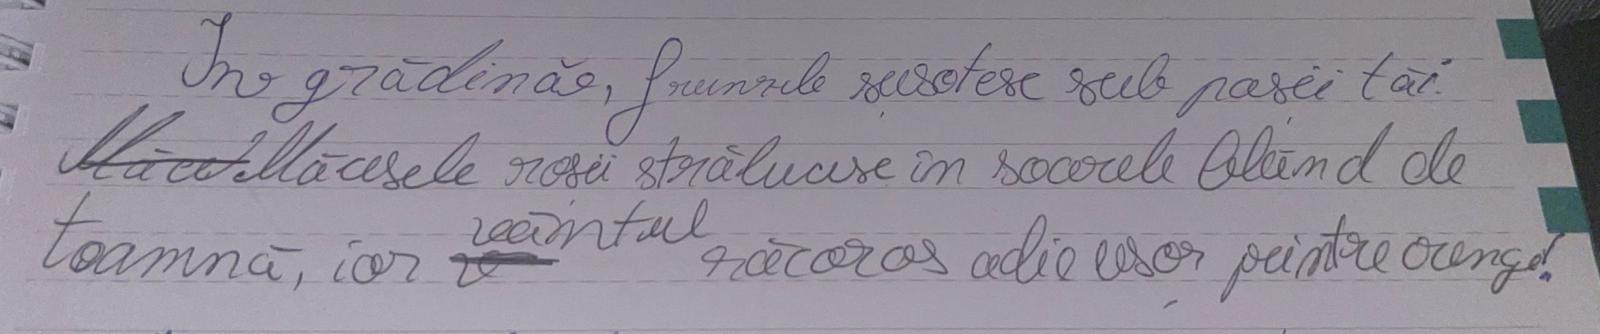 In grădină, frunzele susotesc sub pasii tăi.
Măcesele rosii strălucesc in soarele blând de
toamnă, iar vântul răcoros adie usor peintre crengi!